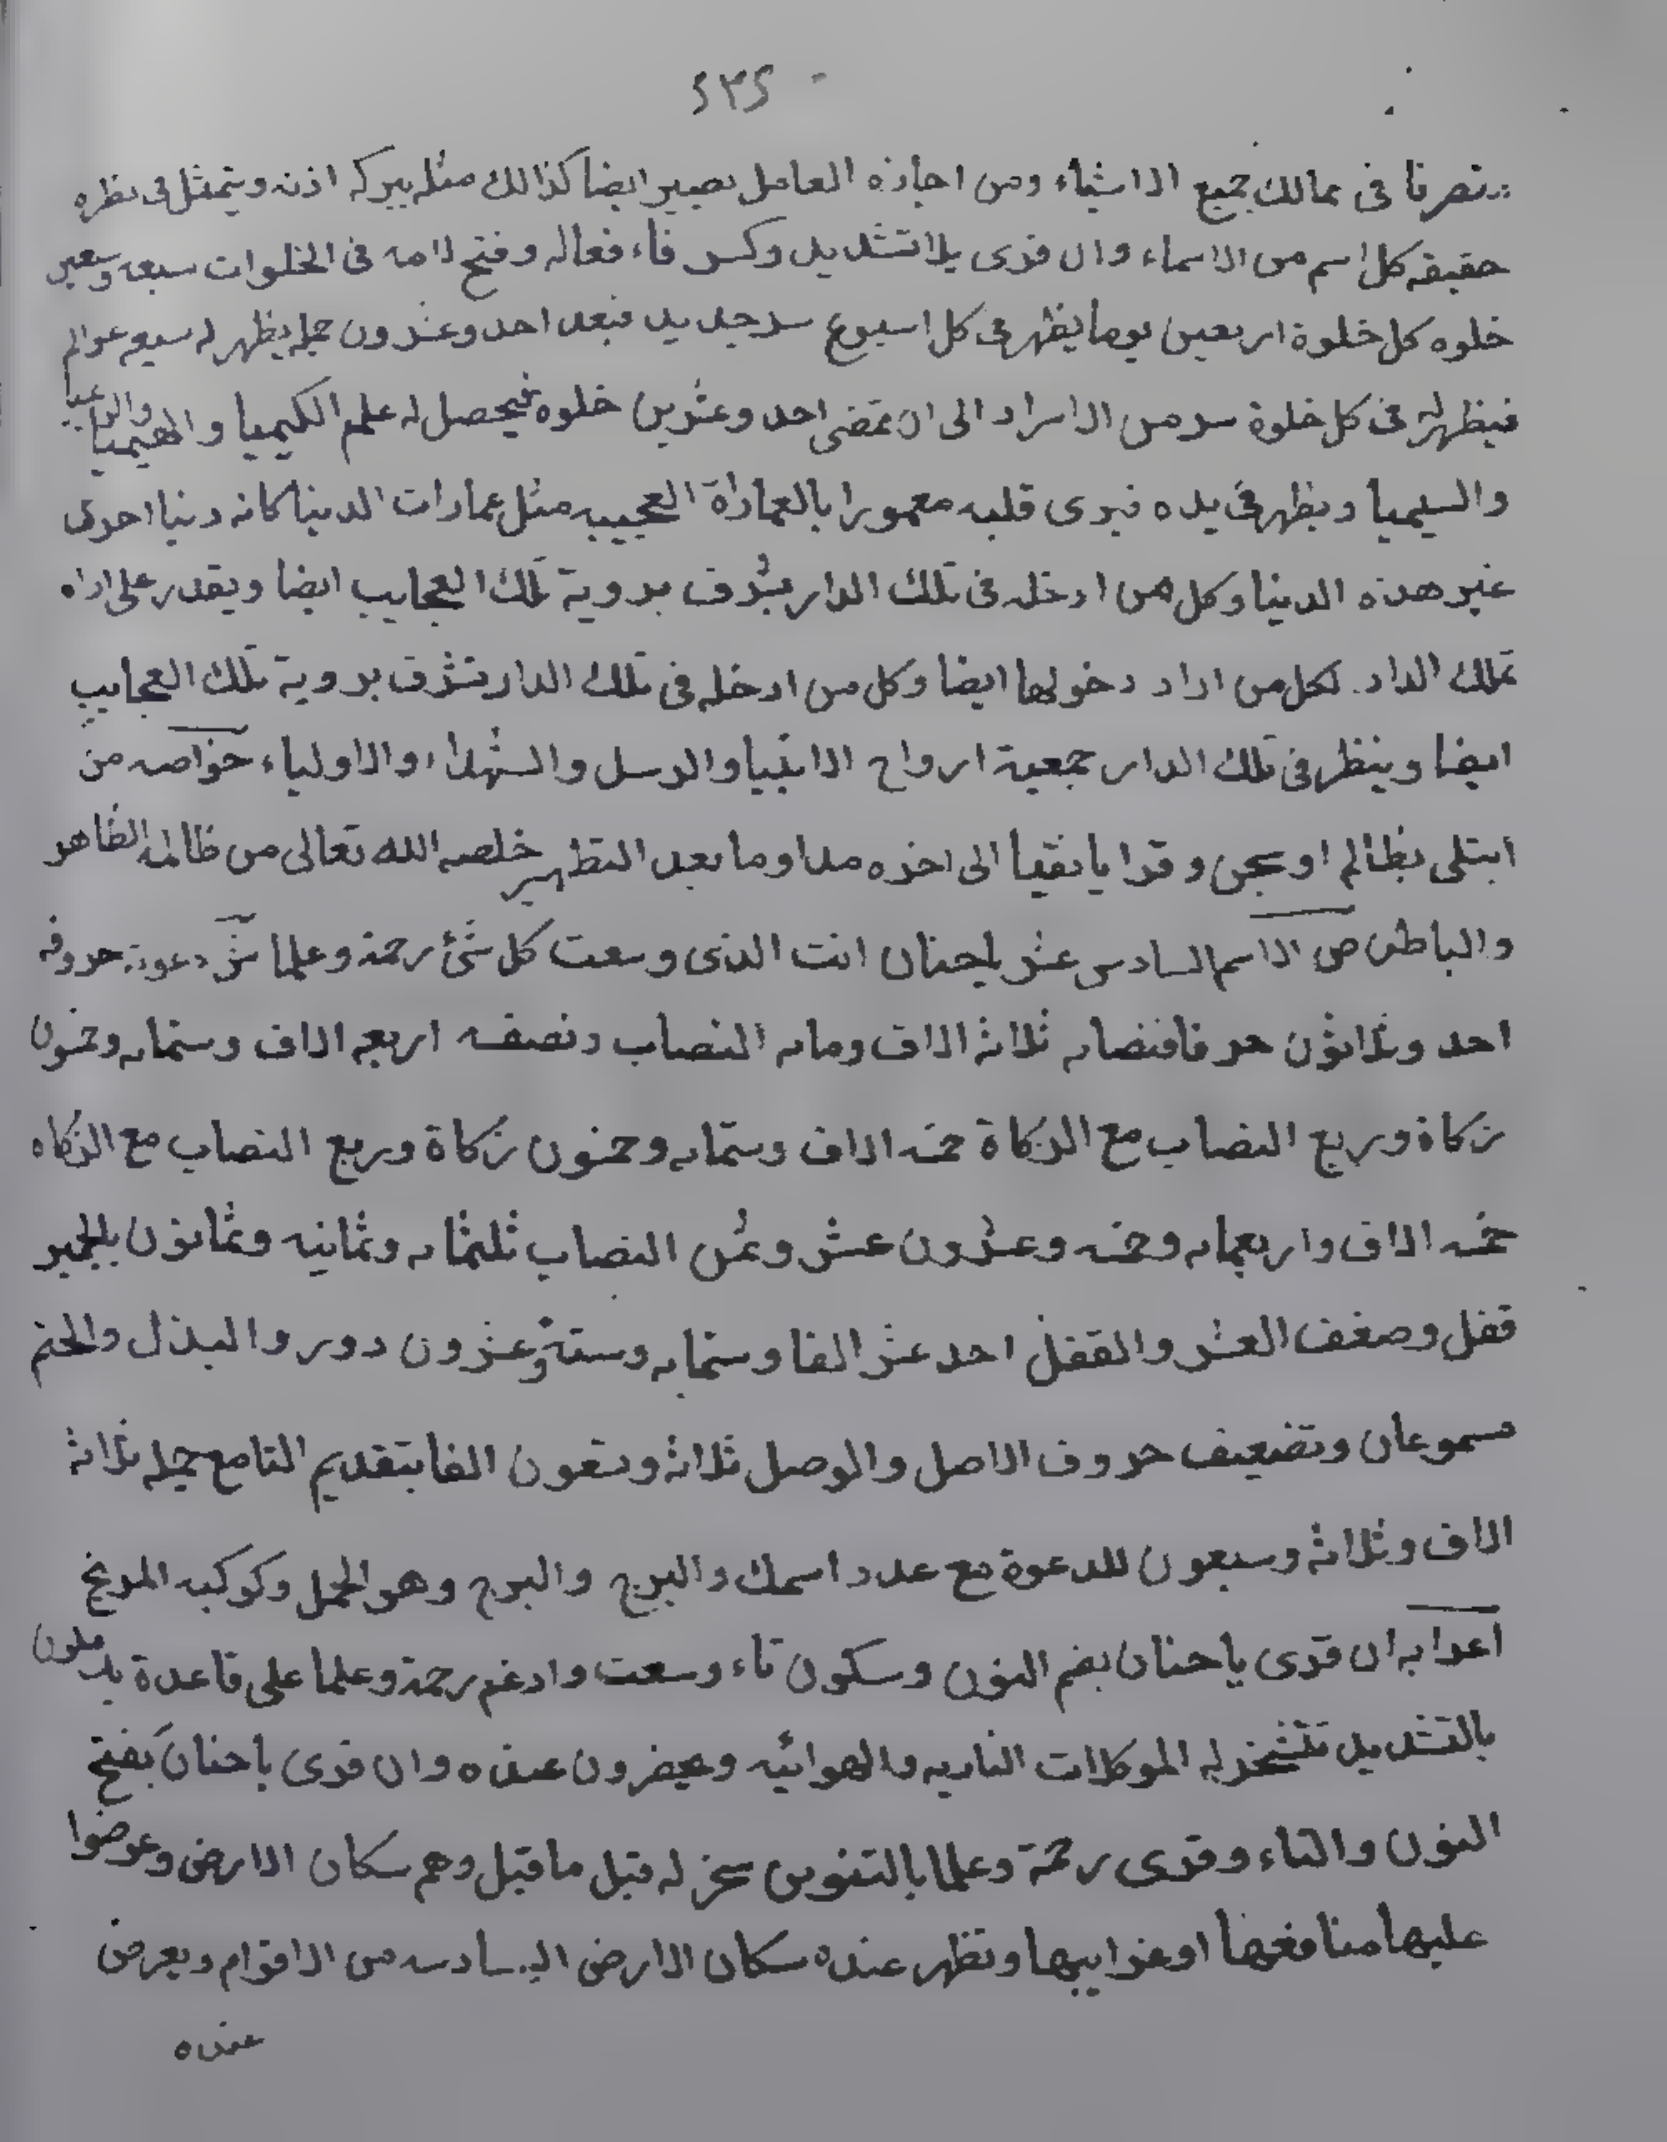 ٢٣٢
متصرفا فى ممالك جميع الاشياء ومن اجازه العامل يصير ايضا كذالك مثله ببركه اذنه ويتمثل فى نظره
حقيقه كل اسم من الاسماء وان قرى بلا تشديد وكسر فاء فعاله وفتح لامه فى الخلوات سبعه وسبعين
خلوه كل خلوة اربعين يوما يظهر فى كل اسبوع سر جديد فبعد احد وعشرون جمله يظهر له سبعه عوالم
فيظهر له فى كل خلوة سر من الاسرار الى ان تمضى احد وعشرين خلوه فيحصل له علم الكيميا والهيميا والريميا
والسيميا ويظهر فى يده فيرى قلبه معمورا بالعماراة العجيبه مثل عمارات الدنيا كانه دنيا اخرى
غير هذه الدنيا وكل من ادخله فى تلك الدار يشرف بروية تلك العجايب ايضا ويقدر على اراه
تلك الدار لكل من اراد دخولها ايضا وكل من ادخله فى تلك الدار تشرف بروية تلك العجايب
ايضا وينظر فى تلك الدار جمعية ارواح الانبيا والرسل والشهداء والاولياء خواصه من
ابتلى بظالم او سجن وقرا يا نقيا الى اخره مداوما بعد التطهير خلصه الله تعالى من ظالمه الظاهر
والباطن ص الاسم السادس عشر ياحنان انت الذى وسعت كل شئ رحمة وعلما ش دعوة حروفه
احد وثلاثون حرفا فنصابه ثلاثة الاف ومايه النصاب ونصفه اربعه الاف وستمايه وخمسون
زكاة وربع النصاب مع الزكاة خمسه الاف وستمايه وخمسون زكاة وربع النصاب مع الزكاه
خمسه الاف واربعمايه وخمسه وعشرون عشر وثمن النصاب ثلثمايه وثمانيه وثمانون بالجبر
قفل وضعف العشر والقفل احد عشر الفا وستمايه وستة وعشرون دور والبذل والختم
مسموعان وتضعيف حروف الاصل والوصل ثلاثة وتسعون الفا بتقديم التا مع جمله ثلاثة
الاف وثلاثة وسبعون للدعوة مع عدد اسمك والبرج والبرج وهو الحمل وكوكبه المريخ
اعرابه ان قرى ياحنان بضم النون وسكون تاء وسعت وادغم رحمة وعلما على قاعدة يرملون
بالتشديد تتسخر له الموكلات الناريه والهوائيه ويحضرون عنده وان قرى ياحنان بفتح
النون والتاء وقرى رحمة وعلما بالتنوين سخر له قبل ما قيل وهم سكان الارض وعرضوا
عليها منافعها او غرايبها وتظهر عنده سكان الارض السادسه من الاقوام ويعرض
عنده